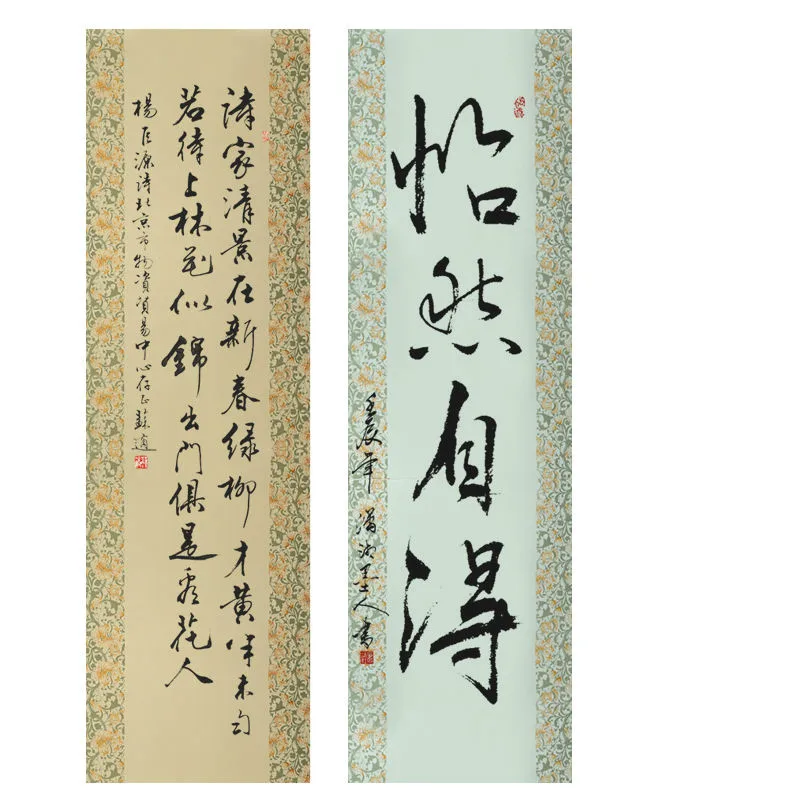 詩家清景在新春绿柳才黄半未匀
若待上林花似錦出門俱是看花人
楊巨源詩北京市物資貿易中心存正蘇適
怡然自得
壬辰年潇湘墨人書